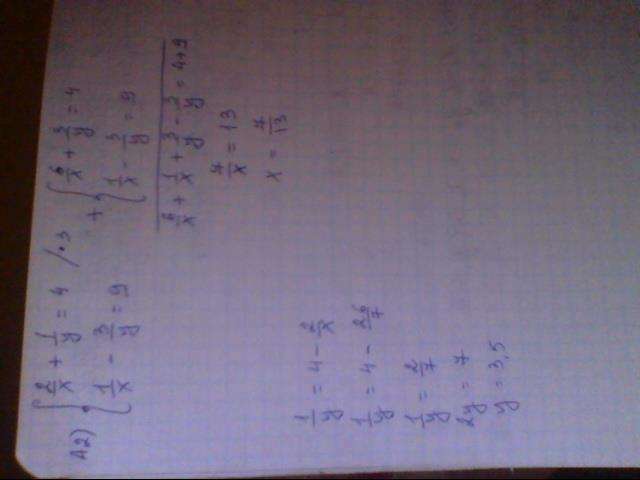 A2) { 2/x + 1/y = 4 /·3 { 6/x + 3/y = 4
1/x - 3/y = 9 + { 1/x - 3/y = 9
6/x + 1/x + 3/y - 3/y = 4+9
7/x = 13
x = 7/13
1/y = 4 - 2/x
1/y = 4 - 26/7
1/y = 2/7
2y = 7
y = 3,5